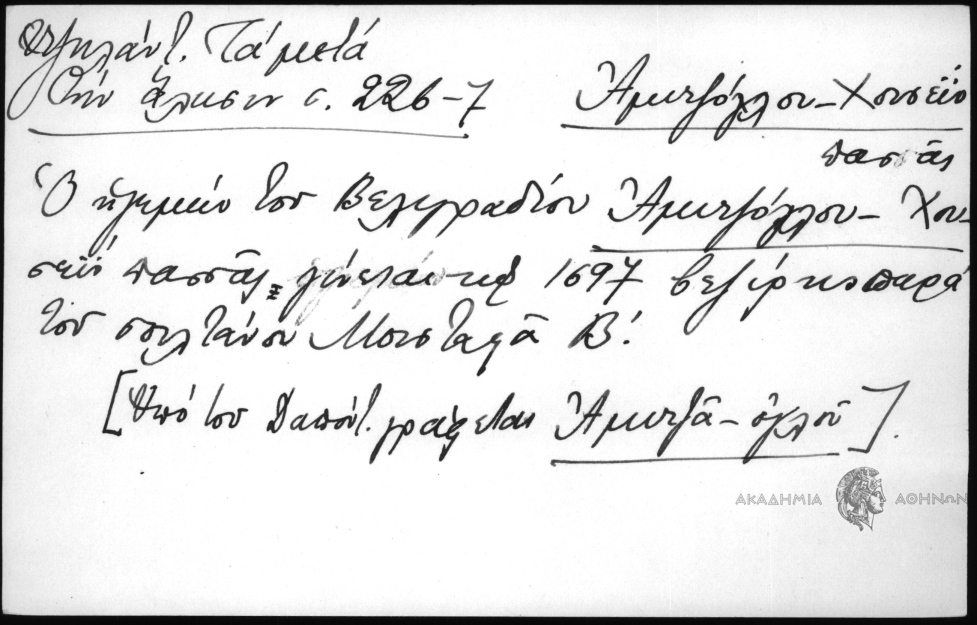 Ὑψηλάντ. Τά μετά
τήν ἅλωσιν σ. 226-7
Ἀμιτζόγλου-Χουσεΐν
πασσᾶς
Ὁ ἡγεμών τοῦ Βελιγραδίου Ἀμιτζόγλου-Χου-
σεΐν πασσᾶς γίνεται τῷ 1697 βεζίρης παρά
τοῦ σουλτάνου Μουσταφᾶ Β΄.
[Ὑπό τοῦ Δαπόντ. γράφεται Ἀμουτζᾶ-ὀγλοῦ].
ΑΚΑΔΗΜΙΑ ΑΘΗΝΩΝ